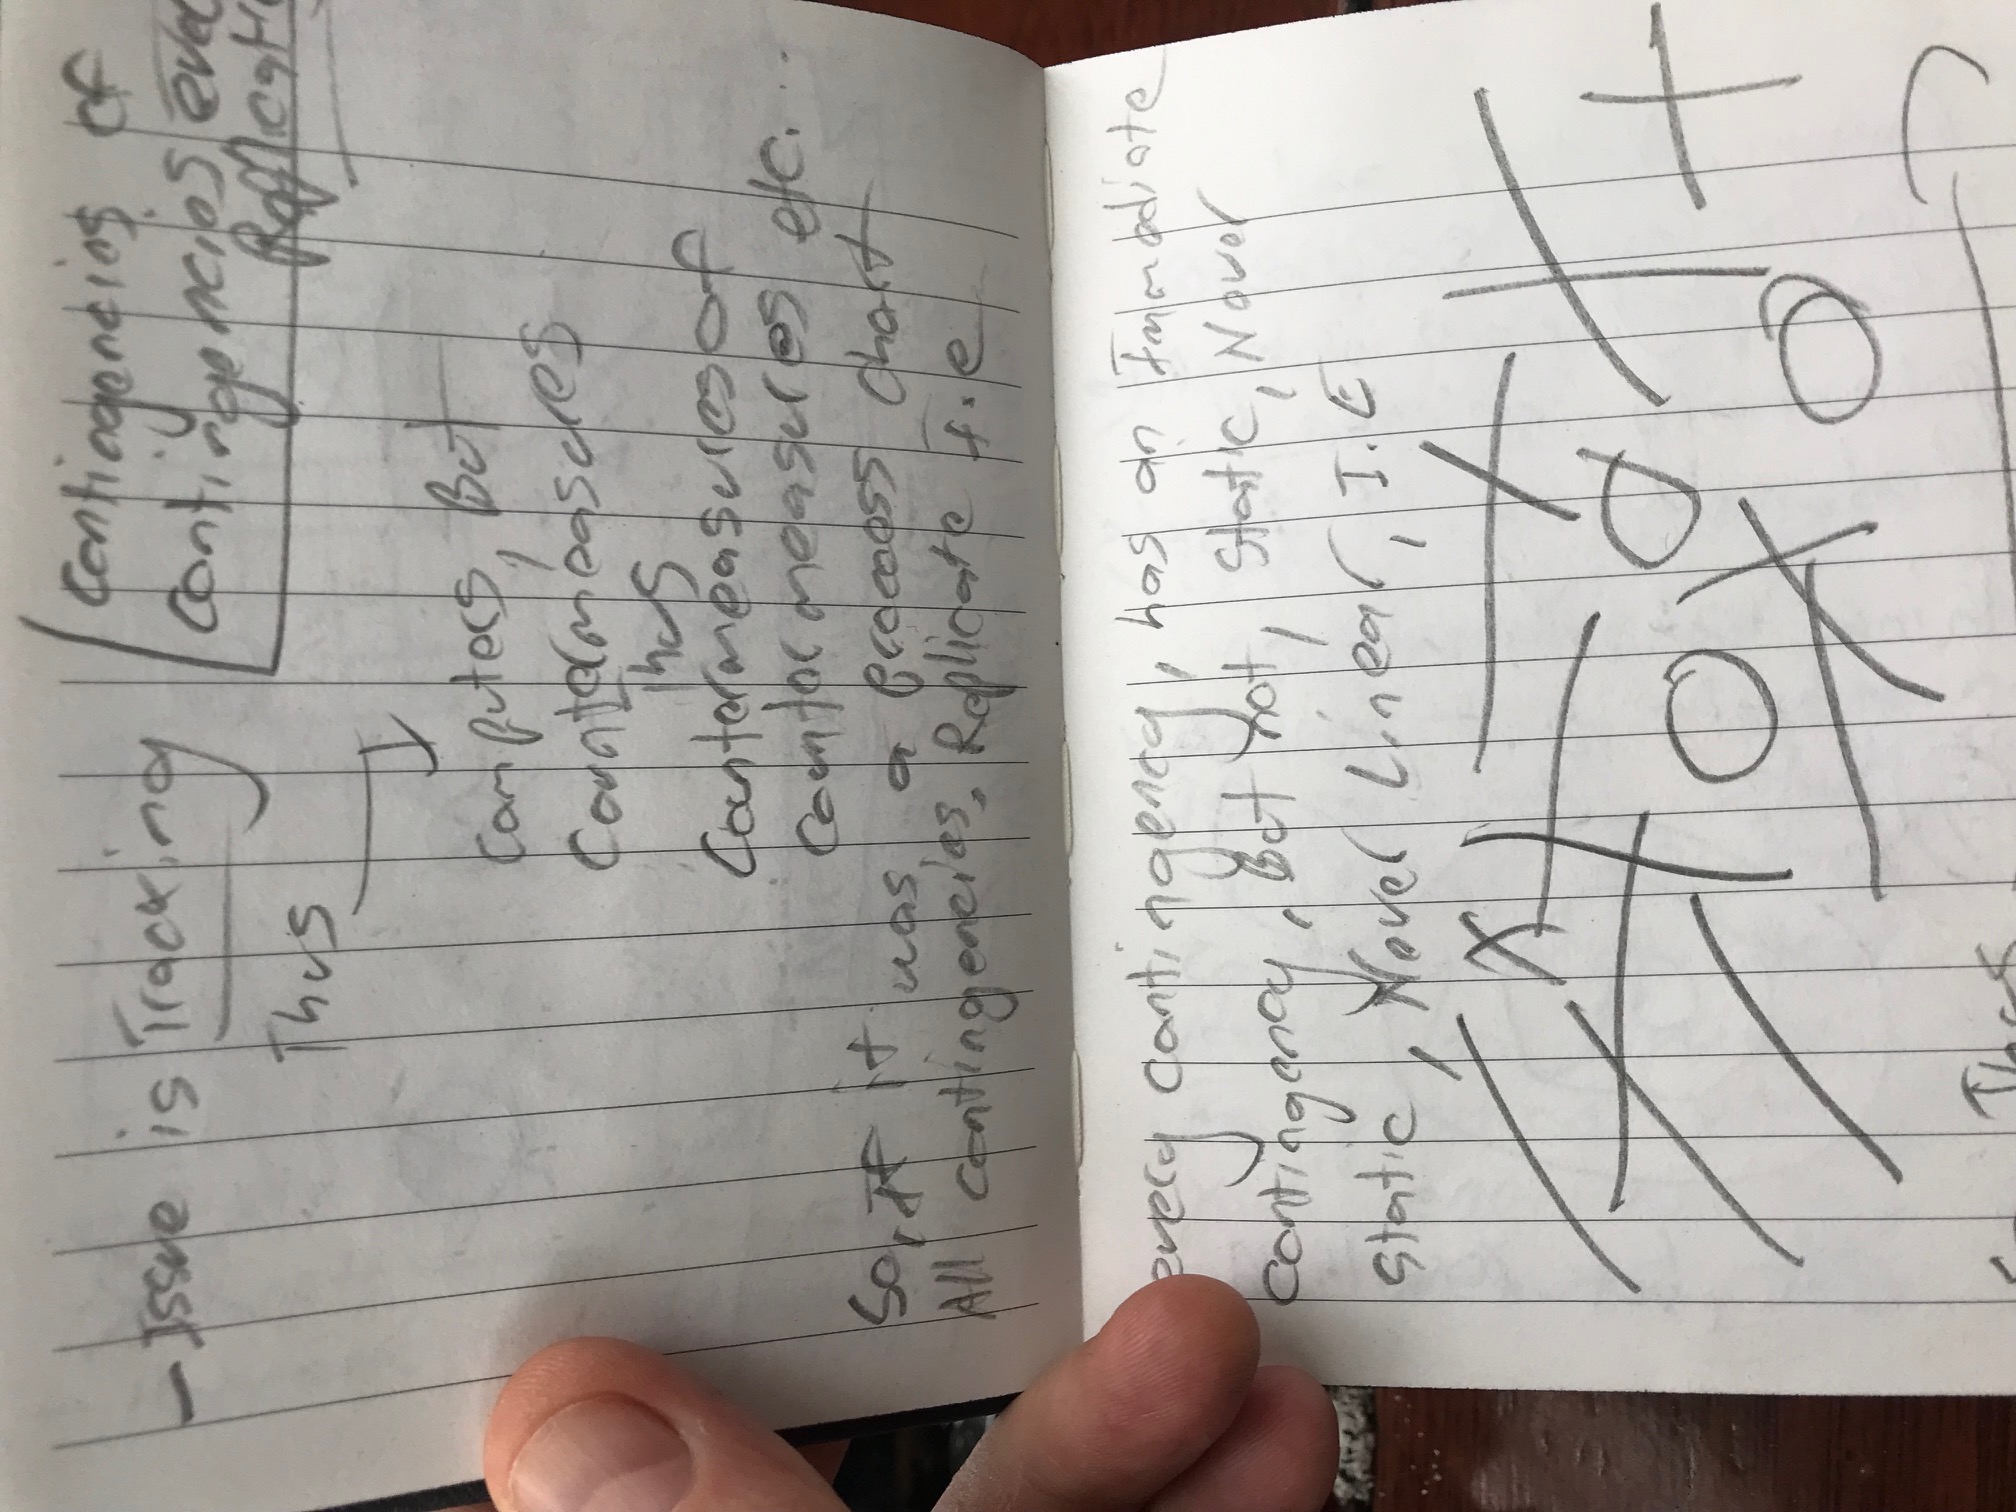 Contingencies of
- Issue is Tracking contingencies
Thus
computers, But
Countermeasures
thus
Countermeasures of
Countermeasures etc...
So, if it was a process chart
All contingencies, Replicate I.e
every contingency, has an Immediate
contingency, But not, static, Novel
static, Novel Linear, I.E
Thus